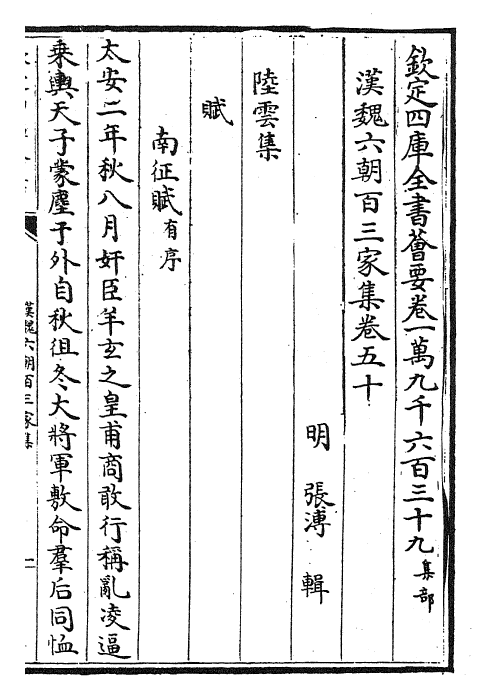 欽定四庫全書薈要卷一萬九千六百三十九集部
漢魏六朝百三家集卷五十
明 張溥 輯
陸雲集
賦
南征賦有序
太安二年秋八月奸臣羊玄之皇甫商敢行稱亂凌逼
乘輿天子蒙塵于外自秋徂冬大將軍敷命羣后同恤
漢魏六朝百三家集